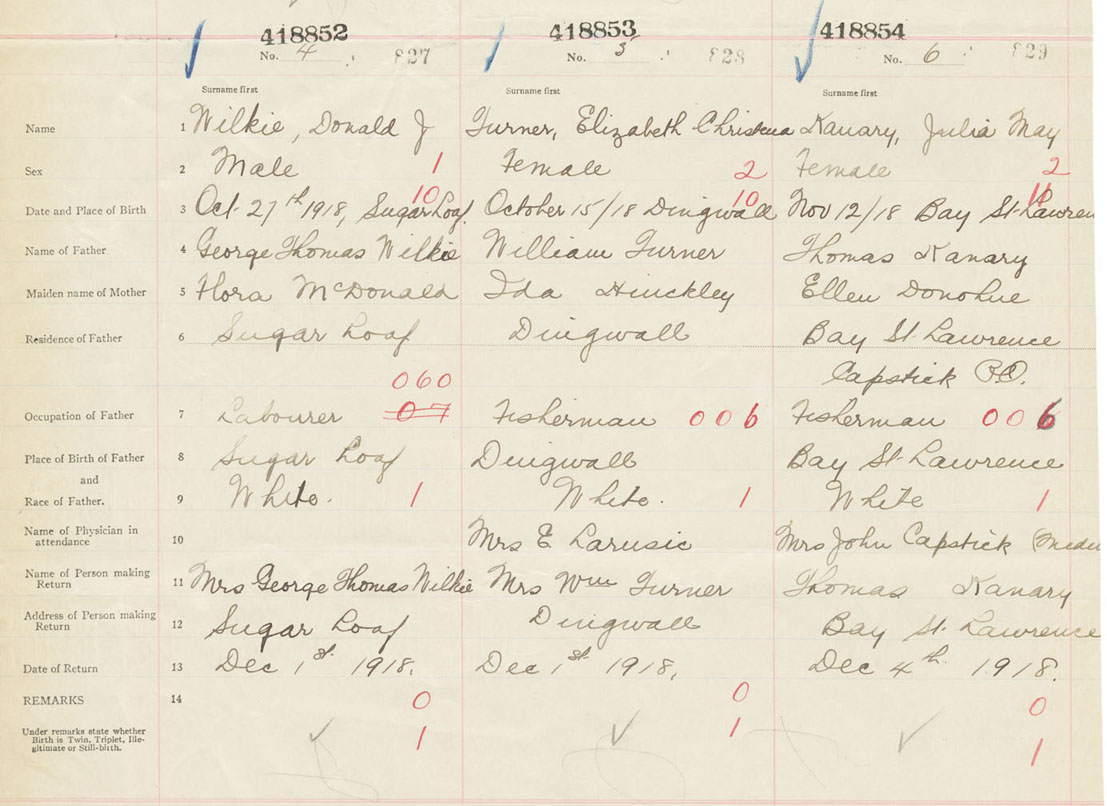 418852 418853 418854
No. 4 827 No. 5 828 No. 6 829
Surname first Surname first Surname first
Name 1 Wilkie, Donald J Turner, Elizabeth Christena Kanary, Julia May
Sex 2 Male 1 Female 2 Female 2
10 10 11
Date and Place of Birth 3 Oct 27th 1918, Sugar Loaf. October 15/18 Dingwall Nov 12/18 Bay St. Lawren
Name of Father 4 George Thomas Wilkie William Turner Thomas Kanary
Maiden name of Mother 5 Flora McDonald Ida Hinckley Ellen Donohue
Residence of Father 6 Sugar Loaf Dingwall Bay St. Lawrence
060 Capstick P.O.
Occupation of Father 7 Labourer 07 Fisherman 006 Fisherman 006
Place of Birth of Father 8 Sugar Loaf Dingwall Bay St. Lawrence
and
Race of Father. 9 White. 1 White. 1 White 1
Name of Physician in
attendance 10 Mrs E Larusic Mrs John Capstick
Name of Person making
Return 11 Mrs George Thomas Wilkie Mrs Wm Turner Thomas Kanary
Address of Person making
Return 12 Sugar Loaf Dingwall Bay St. Lawrence
Date of Return 13 Dec 1st 1918. Dec 1st 1918. Dec 4th 1918.
REMARKS 14 0 0 0
Under remarks state whether
Birth is Twin, Triplet, Ille-
gitimate or Still-birth. 1 1 1